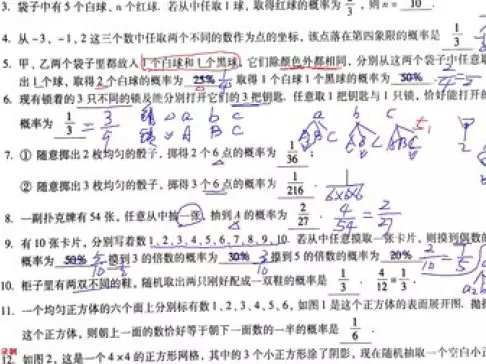 3. 袋子中有 5 个白球、n 个红球. 若从中任取 1 球, 取得红球的概率为 1/3, 则 n = 10 .
4. 从 −3、−1、2 这三个数中任取两个不同的数作为点的坐标, 该点落在第四象限的概率是 1/3
5. 甲、乙两个袋子里都放入 1 个白球和 1 个黑球, 它们除颜色外都相同, 分别从这两个袋子中任意取
出 1 个球, 取得 2 个白球的概率为 25% 1/4 取得 1 个白球 1 个黑球的概率为 50% 2/4
6. 现有锁着的 3 只不同的锁及能分别打开它们的 3 把钥匙. 任意取 1 把钥匙与 1 只锁, 恰好能打开的
概率为 1/3 = 3/9 锁 a b c
锁 A B C
a b c
A B C A B C A B C
7. ① 随意掷出 2 枚均匀的骰子, 掷得 2 个 6 点的概率为 1/36 ;
② 随意掷出 3 枚均匀的骰子, 掷得 3 个 6 点的概率为 1/216 . 1/6×6×6
8. 一副扑克牌有 54 张, 任意从中抽一张, 抽到 A 的概率为 2/27 . 4/54 = 2/27
9. 有 10 张卡片, 分别写着数 1、2、3、4、5、6、7、8、9、10. 若从中任意摸取一张卡片, 则摸到偶数的
概率为 50% 5/10 摸到 3 的倍数的概率为 30% 3/10 摸到 5 的倍数的概率为 20% 2/10 = 1/5
10. 柜子里有两双不同的鞋, 随机取出两只刚好配成一双鞋的概率是 1/3 . 4/12 = 1/3
11. 一个均匀正方体的六个面上分别标有数 1、2、3、4、5、6, 如图 1 是这个正方体的表面展开图. 抛掷
这个正方体, 则朝上一面的数恰好等于朝下一面数的一半的概率是 1/6 .
12. 如图 2, 这是一个 4×4 的正方形网格, 其中的 3 个小正方形涂了阴影, 现在随机抽取一个空白小正